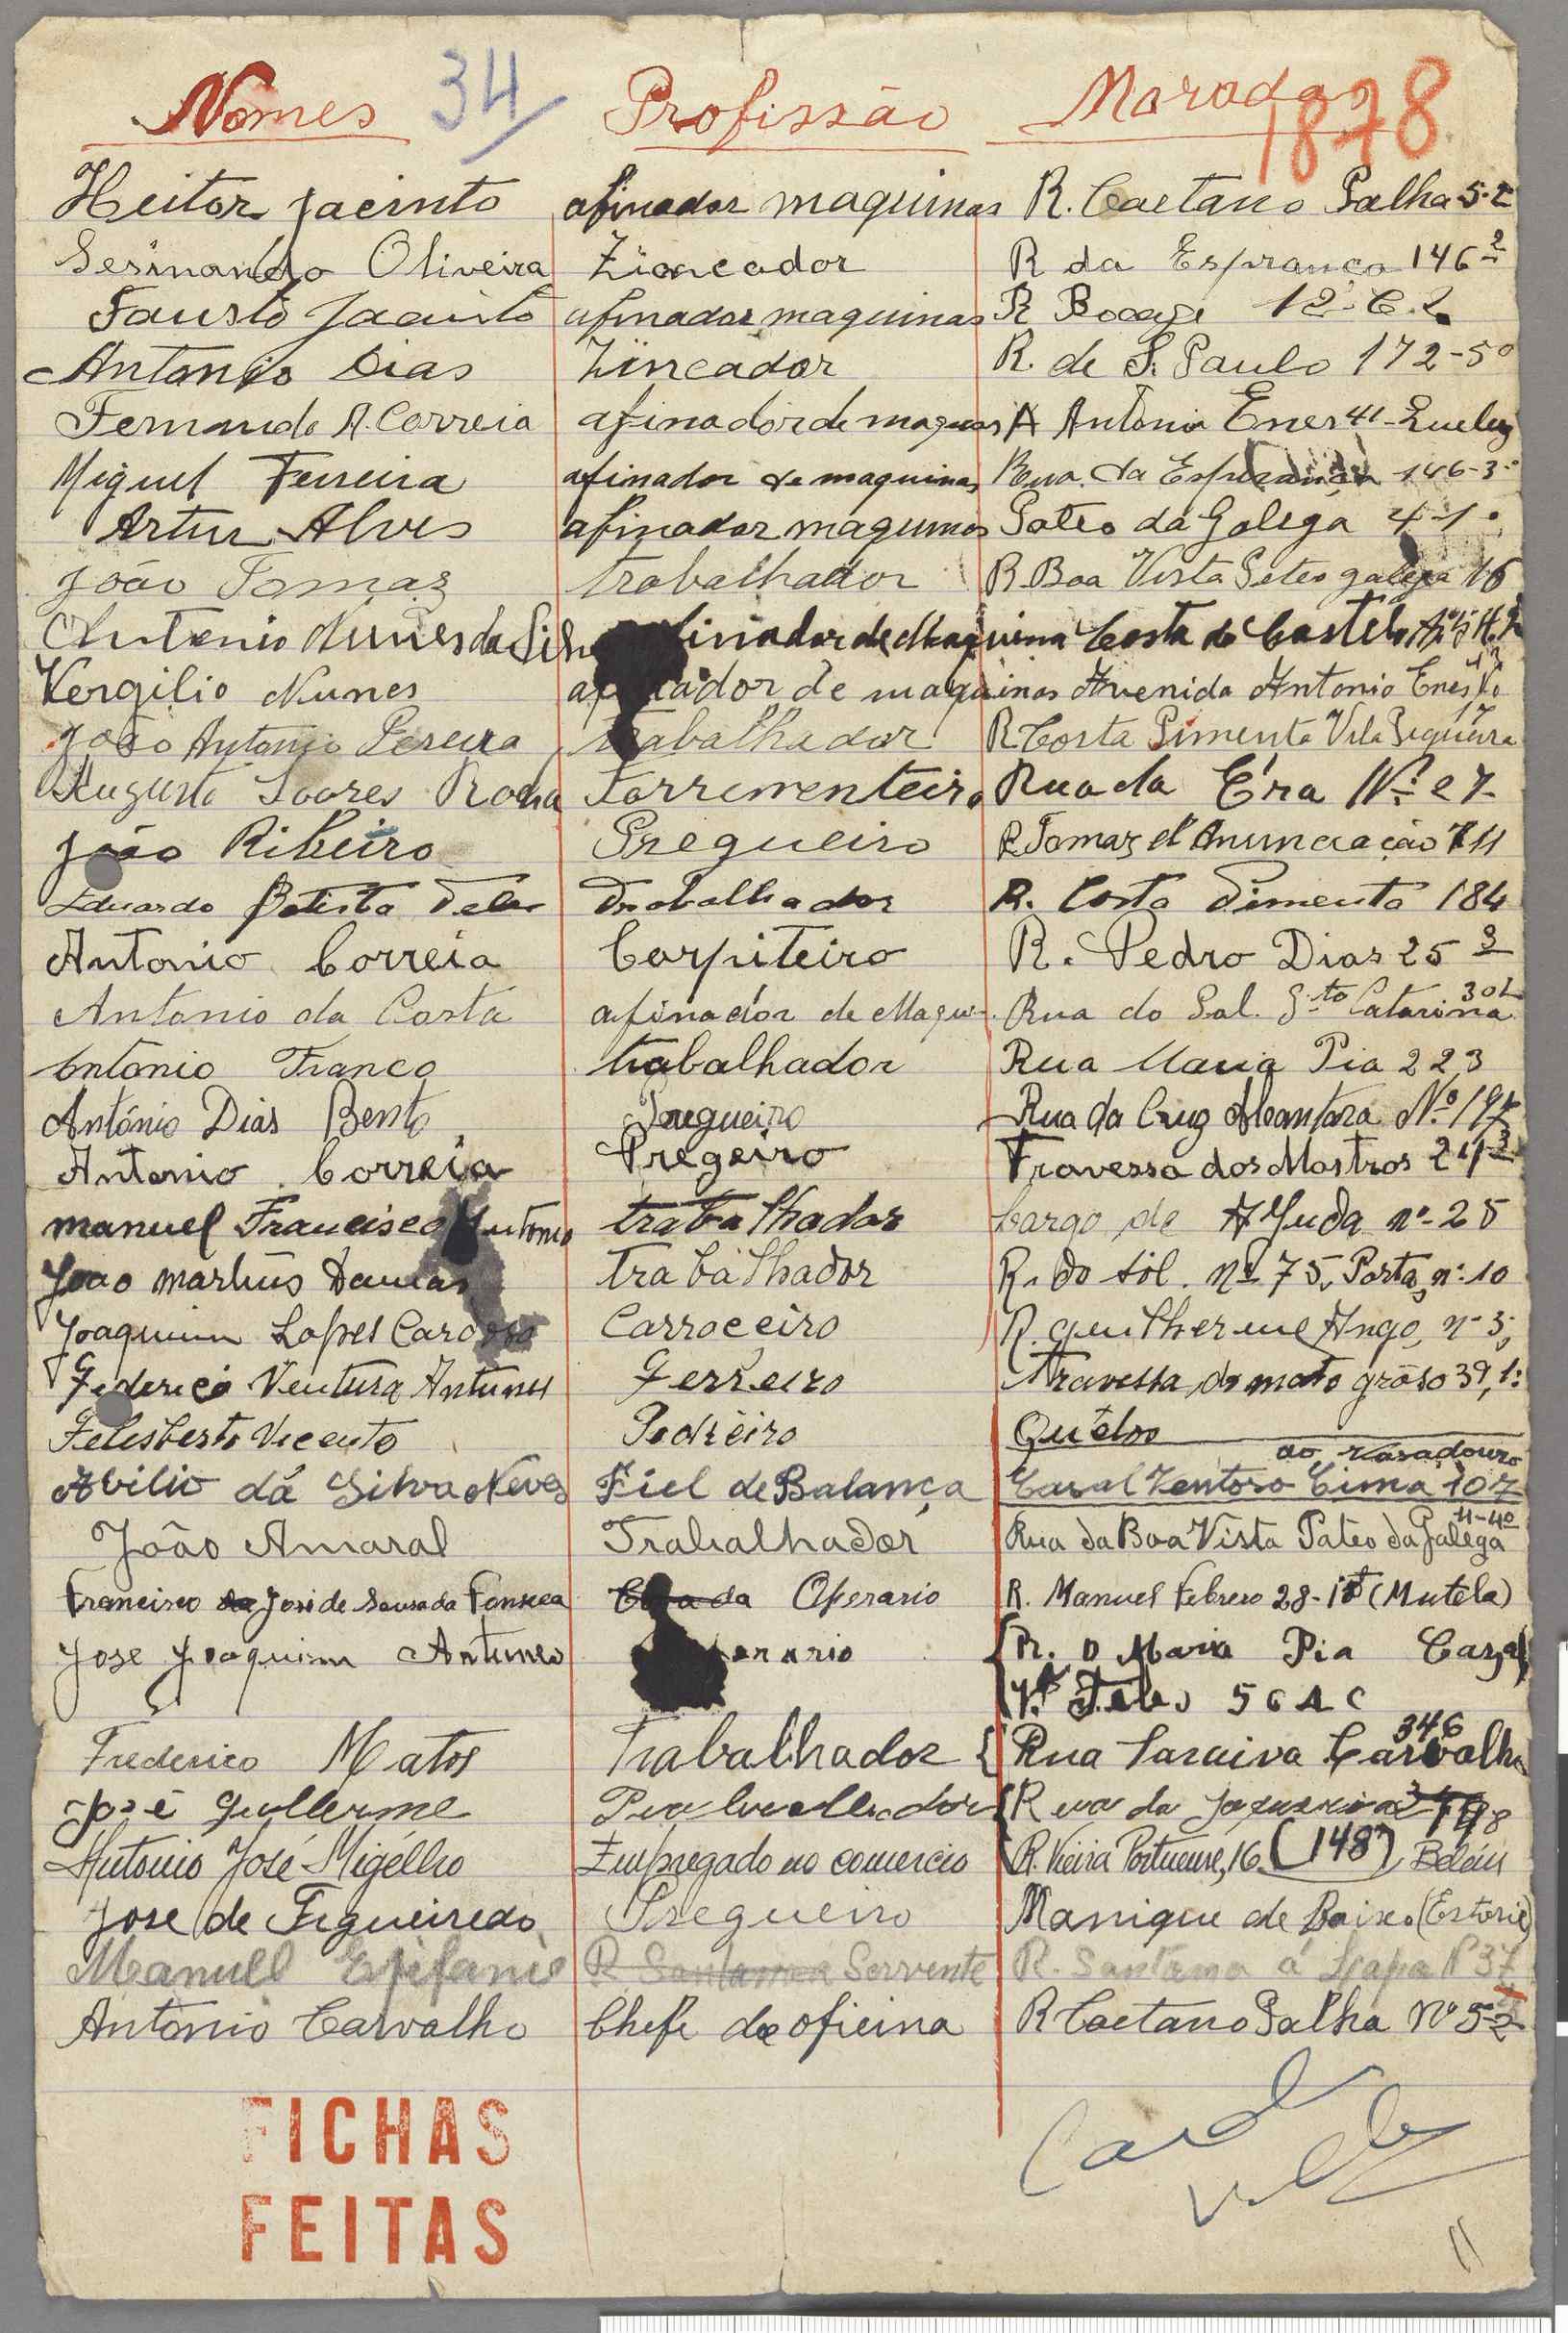 Nomes 34 Profissão Morada 1878
Heitor Jacinto afinador maquinas R. Caetano Palha 5-2
Sesinando Oliveira Zincador R da Esprança 146 2º
Fausto Jacinto afinador maquinas R Bocage 12-C.2
Antonio Dias Zincador R. de S. Paulo 172-5º
Fernando A. Correia afinador de maquinas A Antonio Enes 41-Queluz
Miguel Ferreira afinador de maquinas Rua da Esperança 146-3º
Artur Alves afinador maquinas Pateo da Galega 4-1º
João Tomaz trabalhador R. Boa Vista Pateo galega 16
Antonio Nunes da Silva afinador de Maquina Costa do Castelo
Vergilio Nunes afinador de maquinas Avenida Antonio Enes
João Antonio Pereira trabalhador R Costa Pimenta Vila Sequeira 17
Augusto Soares Rocha Forrementeiro Rua da Éra Nº 27
João Ribeiro Pregueiro R Tomaz d'Anunciação 711
Eduardo Batista Teles Trabalhador R. Costa Pimenta 184
Antonio Correia Carpiteiro R. Pedro Dias 25 3º
Antonio da Costa afinador de Maqui. Rua do Sol. Sto Catarina 30L
Antonio Franco trabalhador Rua Maria Pia 223
António Dias Bento Pregueiro Rua da Cruz Alcantara Nº
Antonio Correia Pregeiro Travessa dos Mastros
manuel Francisco Antonio trabalhador Largo de AJuda nº-25
João martins Damas Trabalhador R. do Sol. nº 75, Porta, nº 10
Joaquim Lopes Cardoso Carroceiro R. guilherme Ango, nº 3,
Federico Ventura Antunes Ferreiro Travessa do mato grôso 39, 1º
Felisberto Vicente Pedreiro Quélus
Abilio da Silva Neves Fiel de Balança Casal Ventoso Cima 107 ao Vasadouro
João Amaral Trabalhador Rua da Boa Vista Pateo da Galega 11-4º
Francisco da José de Sousa da Fonseca Operario R. Manuel Febrero 28-1º (Mutela)
Jose Joaquim Antunes Operario R. D Maria Pia Casal
Vª Teles 56 1 C
Frederico Matos Trabalhador Rua Saraiva Carvalho 346
José Gullerme Trabalhador Rua da Junqueira
Antonio José Migélho Empregado no comercio R. Vieira Portuense, 16 (148) Belém
Jose de Figueiredo Pregueiro Manique de Baixo (Estoril)
Manuel Epifanio R Santana Servente R. Santana á Lapa Nº 37
Antonio Carvalho Chefe de oficina R Caetano Palha Nº 5-2
FICHAS
FEITAS